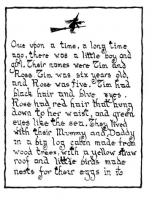 Once upon a time, a long time
ago, there was a little boy and
girl. Their names were Tim and
Rose. Tim was six years old,
and Rose was five. Tim had
black hair and blue eyes.
Rose had red hair that hung
down to her waist, and green
eyes like the sea. They lived
with their Mummy and Daddy
in a big log cabin made from
wood trees, with a yellow straw
roof and little birds made
nests for their eggs in its